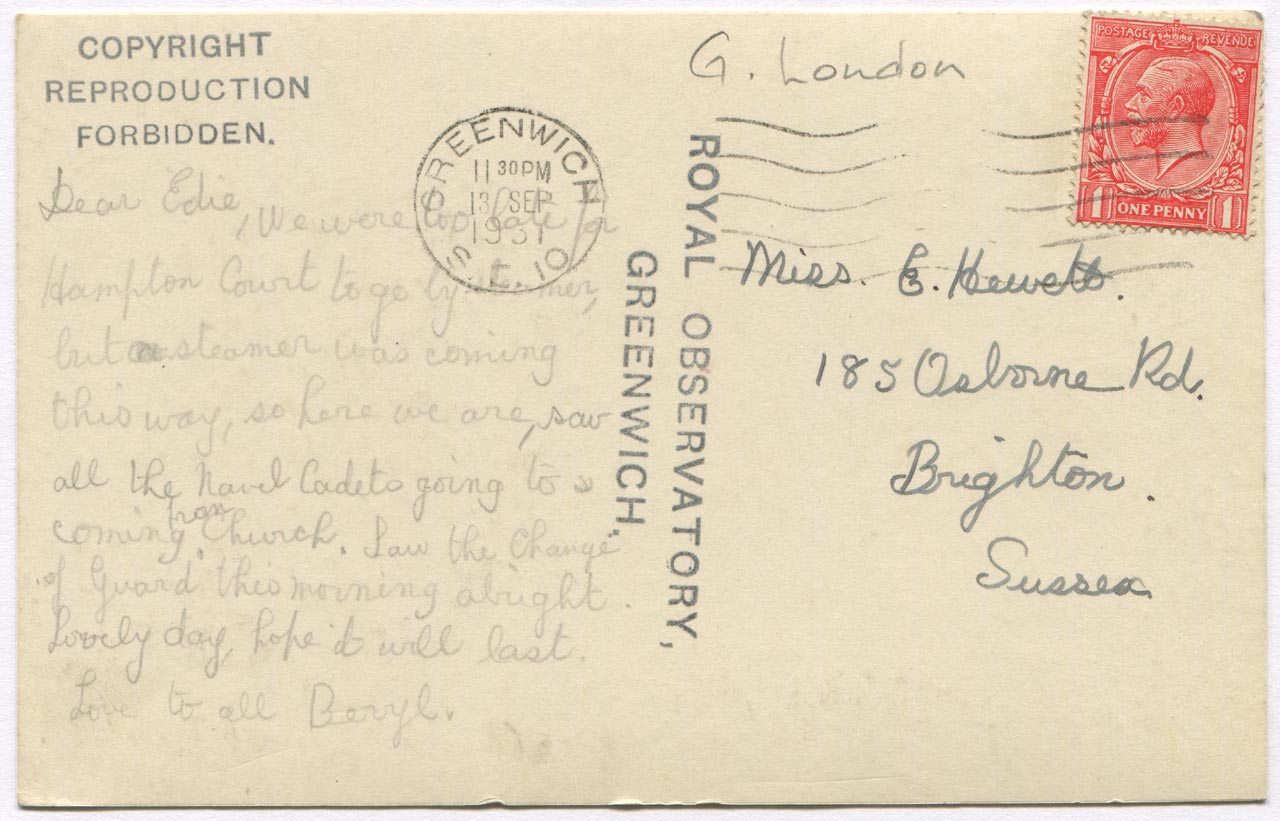 COPYRIGHT
REPRODUCTION
FORBIDDEN.
Dear Edie,
We were too late for
Hampton Court to go by steamer,
but a steamer was coming
this way, so here we are, saw
all the Navel Cadets going to &
coming from Church. Saw the Change
of Guard this morning alright.
Lovely day, hope it will last.
Love to all Beryl.
GREENWICH
11 30 PM
13 SEP
1931
S.E.10
ROYAL OBSERVATORY,
GREENWICH,
G. London
POSTAGE REVENUE
1 ONE PENNY 1
Miss. E. Hewett.
185 Osborne Rd.
Brighton.
Sussex